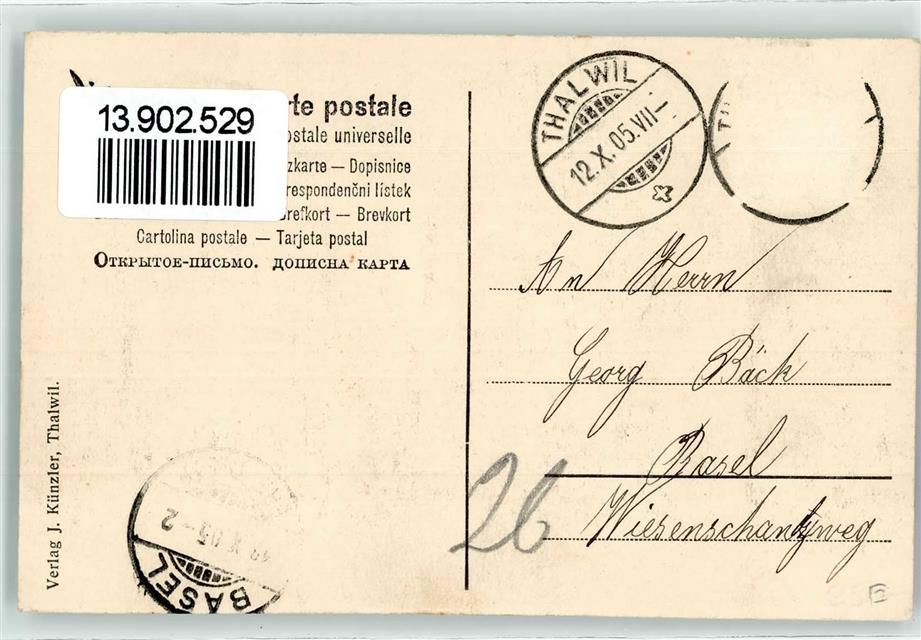 13.902.529
rte postale
ostale universelle
zkarte — Dopisnice
respondenční lístek
Brefkort — Brevkort
Cartolina postale — Tarjeta postal
Открытое-письмо. дописна карта
THALWIL
12.X.05.VII–
An Herrn
Georg Bäck
Basel
Wiesenschanzweg
26
Verlag J. Künzler, Thalwil.
X.05–2
BASEL